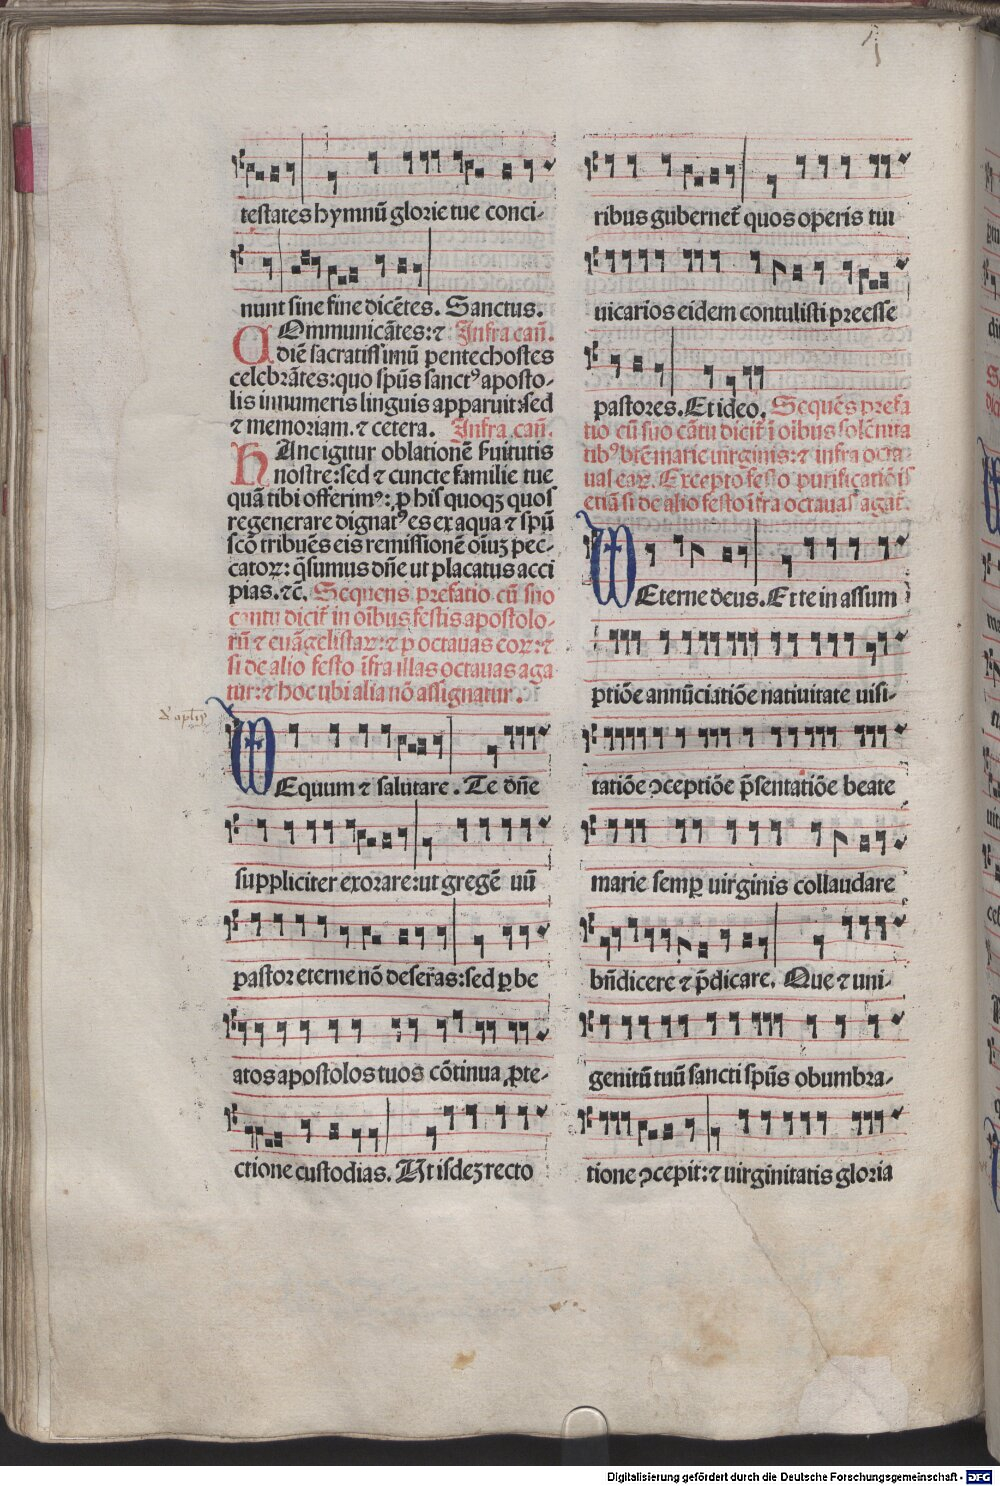 testates hymnū glorie tue conci-
nunt sine fine dicētes. Sanctus.
COmmunicātes: ⁊ Infra cañ.
diē sacratissimū pentechostes
celebrātes: quo spūs sanctꝰ aposto-
lis innumeris linguis apparuit: sed
⁊ memoriam. ⁊ cetera. Infra cañ.
HAnc igitur oblationē ẜuitutis
nostre: sed ⁊ cuncte familie tue
quā tibi offerimꝰ: ꝓ his quoqꝫ quos
regenerare dignatꝰ es ex aqua ⁊ spū
scō tribuēs eis remissionē oīuꝫ pec-
catoꝝ: q̄sumus dn̄e ut placatus acci
pias. ⁊c̄. Sequens prefatio cū suo
cantu dicit̄ in oībus festis apostolo-
rū ⁊ euāgelistaꝝ: ⁊ p octauas eoꝝ: ⁊
si de alio festo īfra illas octauas aga
tur: ⁊ hoc ubi alia nō assignatur.
VEquum ⁊ salutare. Te dn̄e
suppliciter exorare: ut gregē tuū
pastor eterne nō deseras: sed ꝑ be
atos apostolos tuos cōtinua ꝓte-
ctione custodias. Ut isdeꝫ recto
ribus gubernet̄ quos operis tui
uicarios eidem contulisti preesse
pastores. Et ideo. Sequēs prefa
tio cū suo cātu dicit̄ ī oībus solēnita
tibꝰ btē marie uirginis: ⁊ infra octa
uas eaꝝ. Excepto festo purificatiōis
etiā si de alio festo īfra octauas agat̄.
VEterne deus. Et te in assum
ptiōe annūciatiōe natiuitate uisi-
tatiōe ↄceptiōe p̄sentatiōe beate
marie semꝑ uirginis collaudare
bn̄dicere ⁊ p̄dicare. Que ⁊ uni-
genitū tuū sancti spūs obumbra-
tione ↄcepit: ⁊ uirginitatis gloria
Digitalisierung gefördert durch die Deutsche Forschungsgemeinschaft - DFG